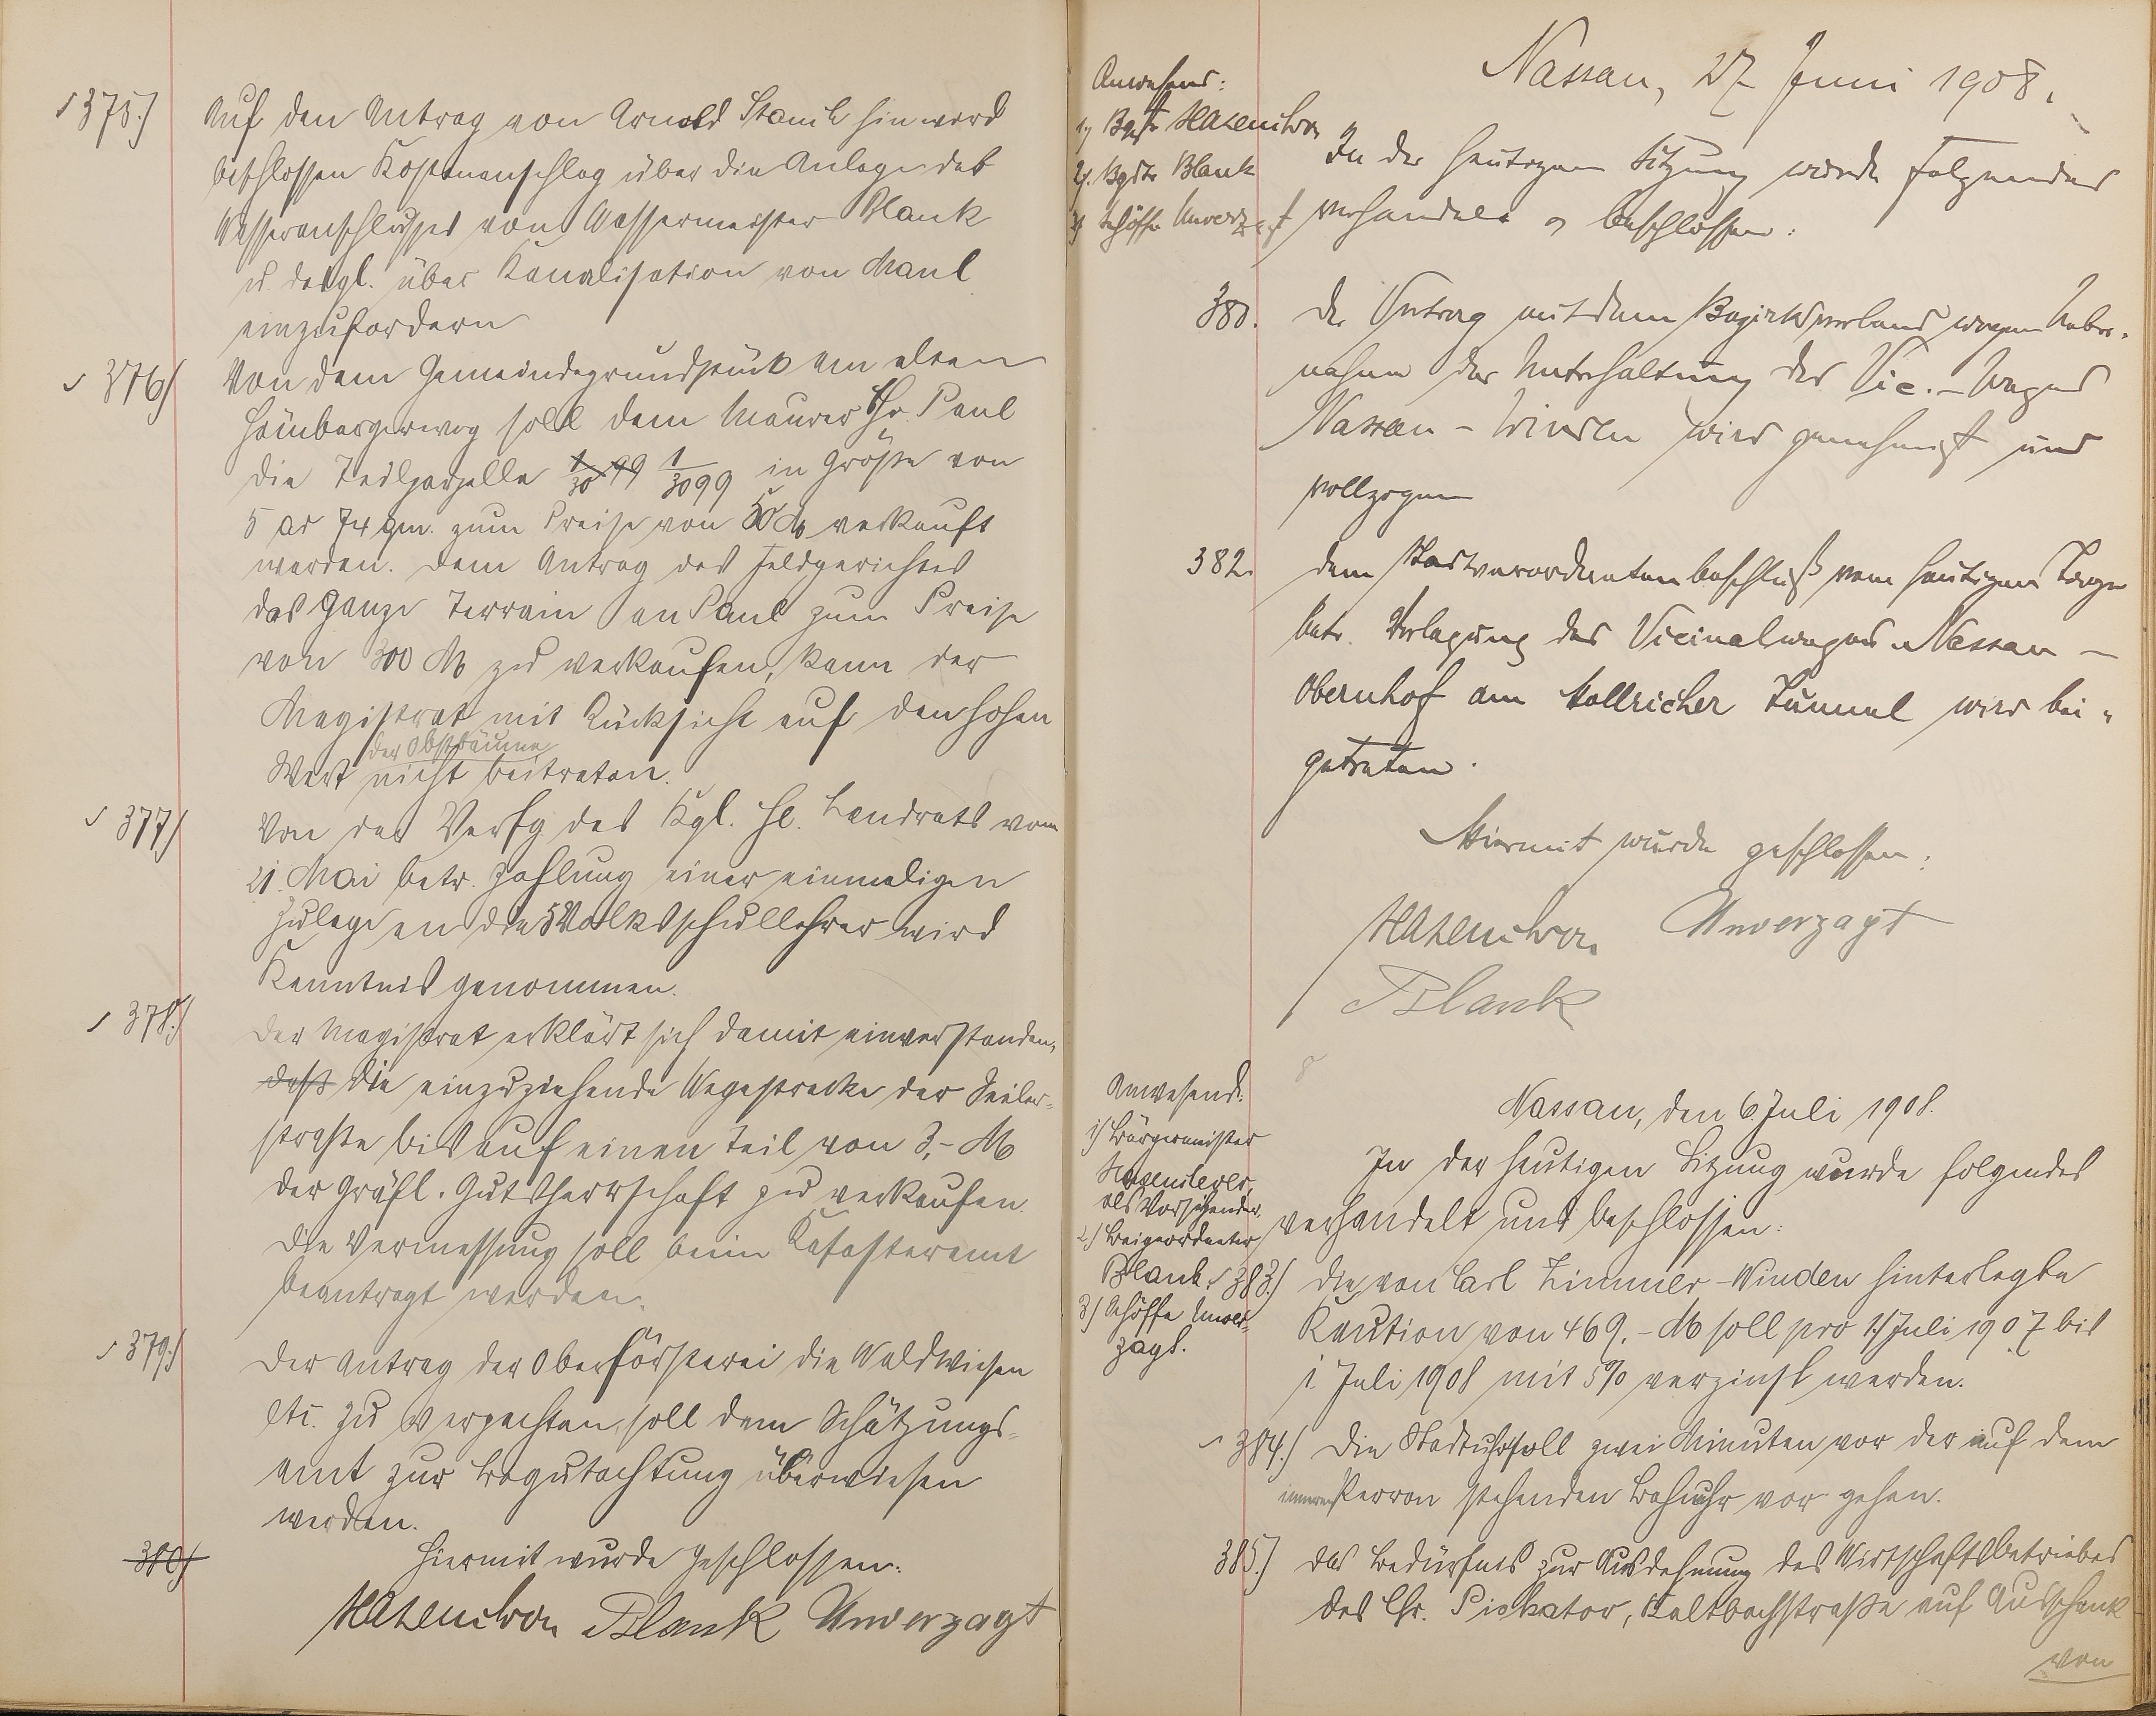 375.) Auf den Antrag von Arnold Stamb hin wird
beschlossen Kostenanschlag über die Anlage des
Wasseranschlusses von Wassermeister Blank
u. desgl. über Kanalisation von Maul
einzufordern
376) Von dem Gemeindegrundstück am alten
Hömbergerweg soll dem Maurer Chr. Paul
die Teilparzelle 1/3099 in Größe von
5 ar 74 qm. zum Preise von 50 M verkauft
werden. Dem Antrag des Feldgerichtes
das ganze Terrain an Paul zum Preise
von 300 M zu verkaufen, kann der
Magistrat mit Rücksicht auf den hohen
der Obstbäume
Wert nicht beitreten.
377) Von der Verfg des Kgl. H. Landrats vom
21. Mai betr. Zahlung einer einmaligen
Zulage an die 5 Volksschullehrer wird
Kenntnis genommen.
378.) Der Magistrat erklärt sich damit einverstanden,
daß die einzuziehende Wegestrecke der Seiler-
straße bis auf einen Teil von 3,- M
der Gräfl. Gutsherrschaft zu verkaufen.
Die Vermessung soll beim Katasteramt
beantragt werden.
379.) Der Antrag der Oberförsterei die Waldwiesen
etc. zu verpachten, soll dem Schätzungs-
amt zur Begutachtung überwiesen
werden.
380) Hiermit wurde geschlossen.
Hasenclever Blank Unverzagt
Nassau, 27 Juni 1908.
Anwesend:
1) Bgstr Hasenclever
2). Bgdtr Blank
3) Schöffe Unverzagt
In der heutigen Sitzung wurde folgendes
verhandelt u beschlossen:
380. Der Vertrag mit dem Bezirksverband wegen Ueber-
nahme der Unterhaltung des Vic.-Weges
Nassau - Winden wird genehmigt und
vollzogen
382. Dem Stadtverordnetenbeschluß vom heutigen Tage
betr. Verlegung des Vicinalweges Nassau -
Obernhof am Hollricher Tunnel wird bei-
getreten.
Hiermit wurde geschlossen:
Hasenclever Unverzagt
Blank
Nassau, den 6 Juli 1908.
Anwesend:
1) Bürgermeister
Hasenclever,
als Vorsitzender.
2.) Beigeordneter
Blank.
3) Schöffe Unver-
zagt.
In der heutigen Sitzung wurde folgendes
verhandelt und beschlossen:
383.) Die von Carl Zimmer-Winden hinterlegte
Kaution von 469.- M soll pro 1. Juli 1907 bis
1 Juli 1908 mit 5% verzinst werden.
384.) Die Stadtuhr soll zwei Minuten vor der auf dem
inneren Perron stehenden Bahnuhr vor gehen.
385.) Das Bedürfnis zur Ausdehnung des Wirtschaftsbetriebes
des Chr. Piskator, Kaltbachstraße auf Ausschank
von